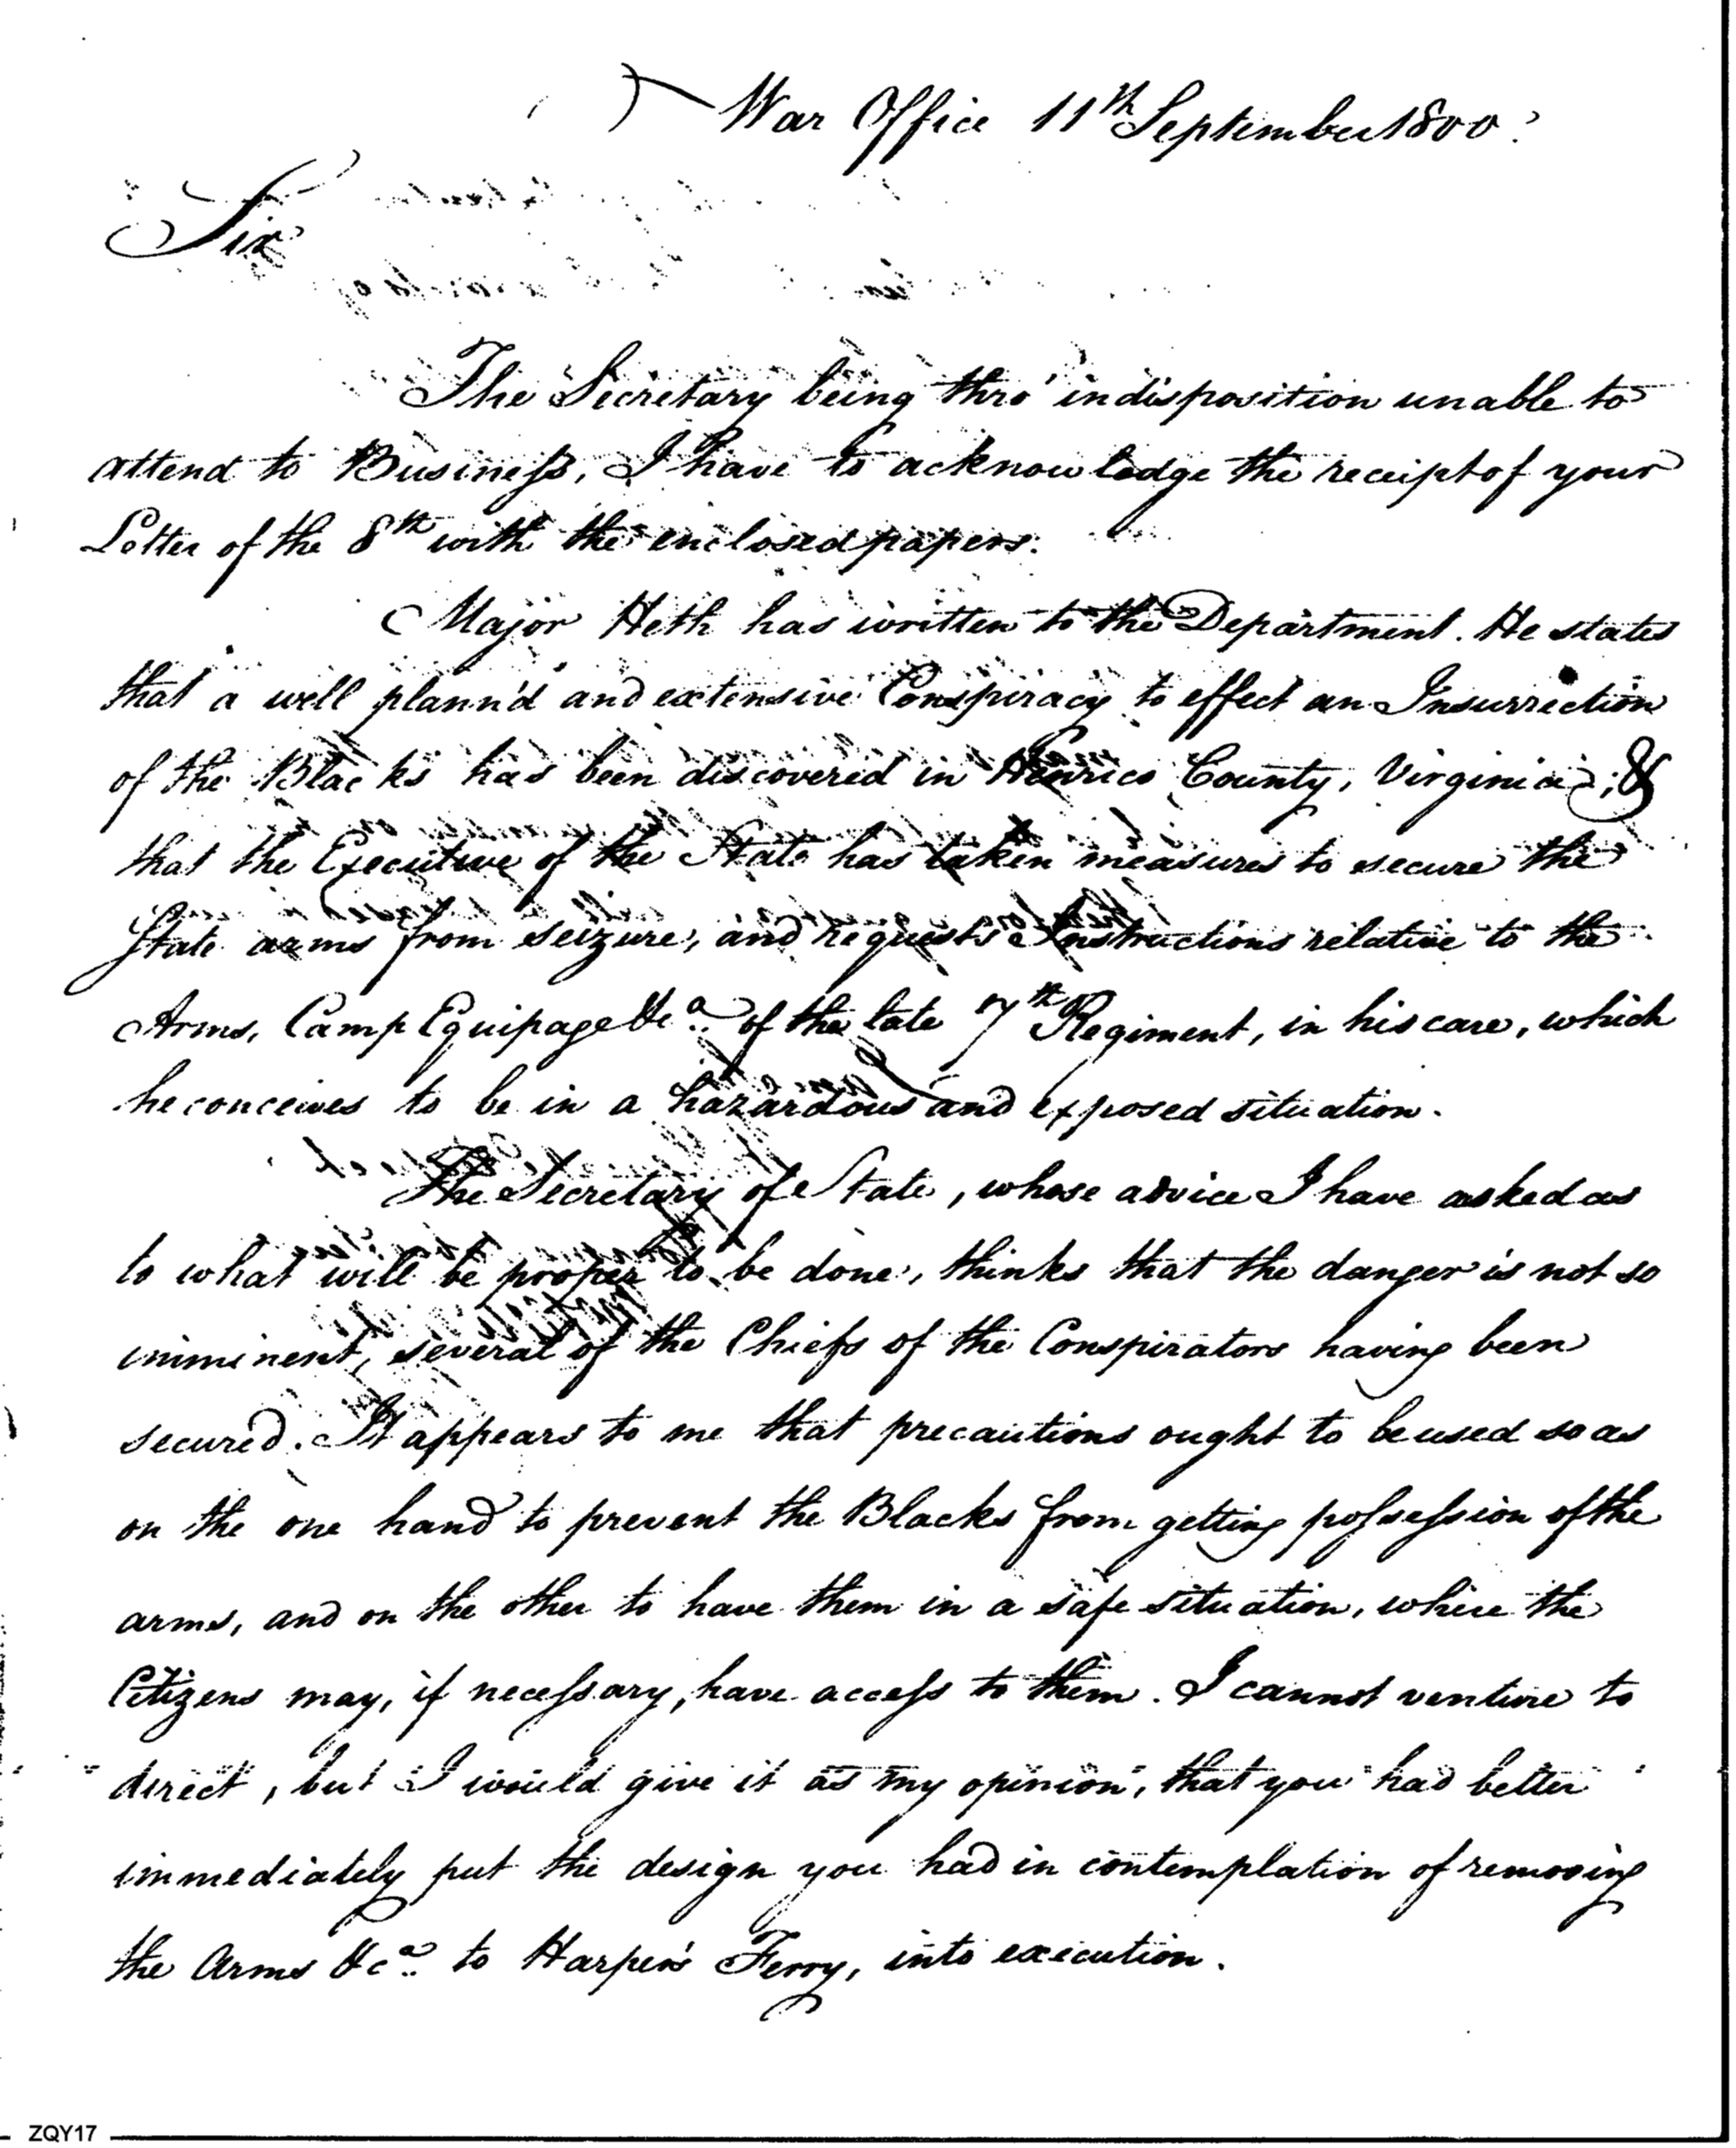 War Office 11th September 1800.
Sir
The Secretary being thro' indisposition unable to
attend to Business, I have to acknowledge the receipt of your
Letter of the 8th with the enclosed papers.
Major Heth has written to the Department. He states
that a well plann'd and extensive Conspiracy to effect an Insurrection
of the Blacks has been discovered in Henrico County, Virginia; &
that the Executive of the State has taken measures to secure the
State arms from seizure, and requests Instructions relative to the
Arms, Camp Equipage &ca. of the late 7th Regiment, in his care, which
he conceives to be in a hazardous and exposed situation.
The Secretary of State, whose advice I have asked as
to what will be proper to be done, thinks that the danger is not so
imminent, several of the Chiefs of the Conspirators having been
secured. It appears to me that precautions ought to be used so as
on the one hand to prevent the Blacks from getting possession of the
arms, and on the other to have them in a safe situation, where the
Citizens may, if necessary, have access to them. I cannot venture to
direct, but I would give it as my opinion, that you had better
immediately put the design you had in contemplation of removing
the Arms &ca. to Harper's Ferry, into execution.
ZQY17